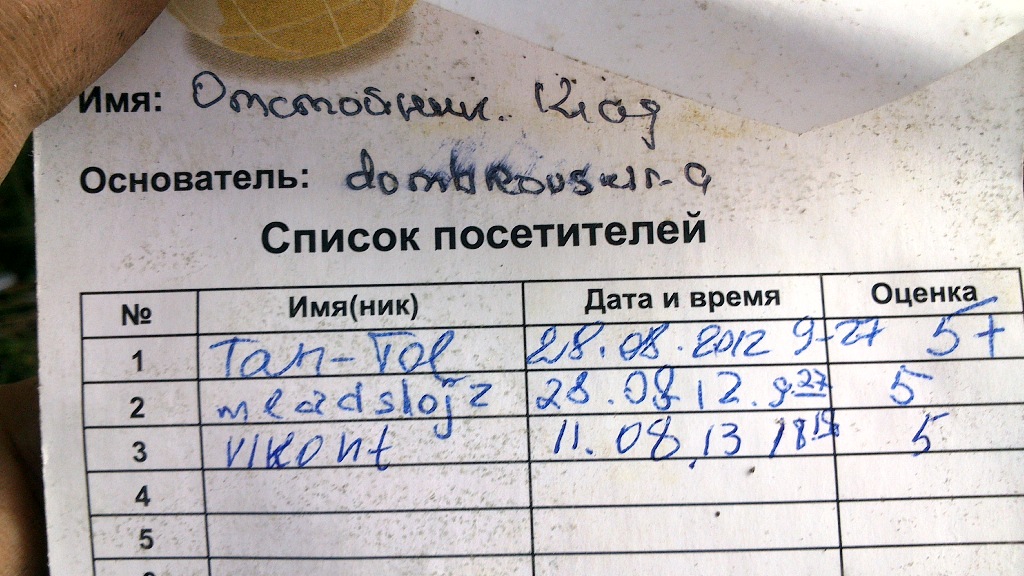 Имя: Отстойник. Клад
Основатель:
Список посетителей
№ Имя(ник) Дата и время Оценка
1 Tan-Tol 28.08.2012 9-27 5+
2 mladsloj2 28.08.12. 9 27 5
3 vikont 11.08.13 18 5
4
5